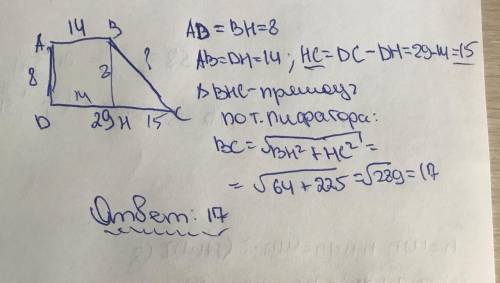 14
A B
8 8 ?
14
D 29 H 15 C
AD = BH = 8
AB = DH = 14 ; HC = DC - DH = 29 - 14 = 15
Δ BHC - прямоуг
по т. Пифагора:
BC = √BH² + HC² =
= √64 + 225 = √289 = 17
Ответ: 17